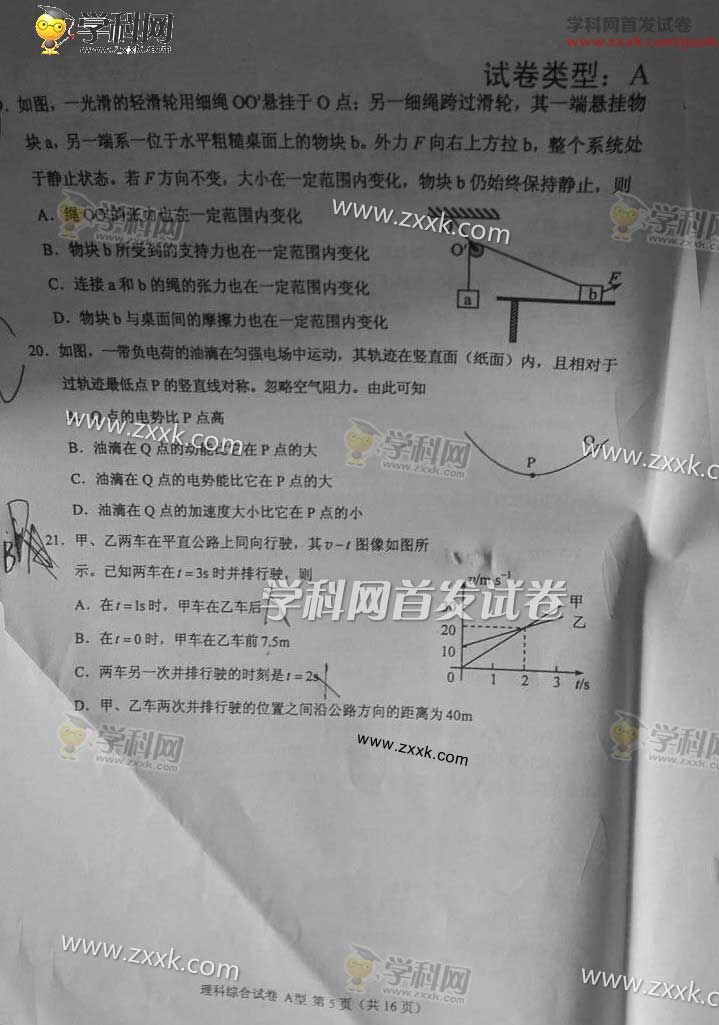 学科网
www.zxxk.com
学科网首发试卷
试卷类型：A
如图，一光滑的轻滑轮用细绳OO'悬挂于O点；另一细绳跨过滑轮，其一端悬挂物
块a，另一端系一位于水平粗糙桌面上的物块b。外力F向右上方拉b，整个系统处
于静止状态。若F方向不变，大小在一定范围内变化，物块b仍始终保持静止，则
A．绳OO'的张力也在一定范围内变化
www.zxxk.com
B．物块b所受到的支持力也在一定范围内变化
C．连接a和b的绳的张力也在一定范围内变化
D．物块b与桌面间的摩擦力也在一定范围内变化
O'
a
b
F
20．如图，一带负电荷的油滴在匀强电场中运动，其轨迹在竖直面（纸面）内，且相对于
过轨迹最低点P的竖直线对称。忽略空气阻力。由此可知
A．Q点的电势比P点高
www.zxxk.com
B．油滴在Q点的动能比它在P点的大
C．油滴在Q点的电势能比它在P点的大
D．油滴在Q点的加速度大小比它在P点的小
学科网
www.zxxk.com
P
Q
www.zxxk.com
21．甲、乙两车在平直公路上同向行驶，其v－t图像如图所
示。已知两车在t＝3s时并排行驶，则
学科网首发试卷
A．在t＝1s时，甲车在乙车后
B．在t＝0时，甲车在乙车前7.5m
C．两车另一次并排行驶的时刻是t＝2s
D．甲、乙车两次并排行驶的位置之间沿公路方向的距离为40m
v/m s⁻¹
甲
乙
20
10
0 1 2 3 t/s
学科网
www.zxxk.com
www.zxxk.com
学科网
www.zxxk.com
www.zxxk.com
学科网
www.zxxk.com
www.zxxk.com
理科综合试卷 A型 第5页（共16页）